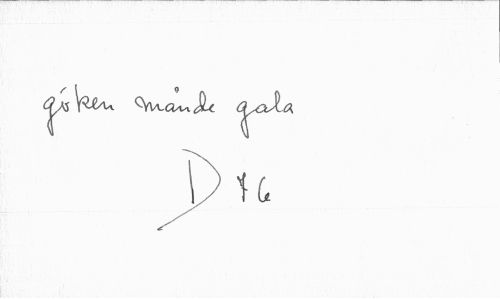 göken månde gala
D 76